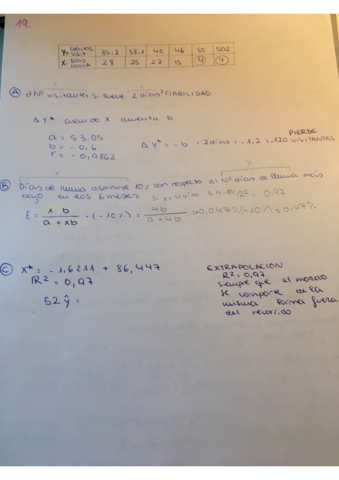 19.
Y: CIENTOS VISIT. 35.2 38.1 40 46 50 50.2
X: DÍAS LLUVIA 28 25 22 15 4 4
A d Nº visitantes si llueve 2 días? FIABILIDAD
Δ y* cuando x aumenta b
a = 53.05
b = -0,6
r = -0,9862
Δ y* = -b · 2 días = -1,2 = -120 VISITANTES
PIERDE
x
y
B Días de lluvia 10% con respecto al nº días de lluvia más
bajo en los 6 meses R² = 0.97
E = x b / a + xb · (-10%) = 4b / a + 4b · 0,047%(-10%) = 0,47%
C X* = -1,6211 + 86,447
R² = 0,97
52 ŷ =
EXTRAPOLACIÓN
R² = 0,97
siempre que el modelo
se comporte de la
misma forma fuera
del recorrido